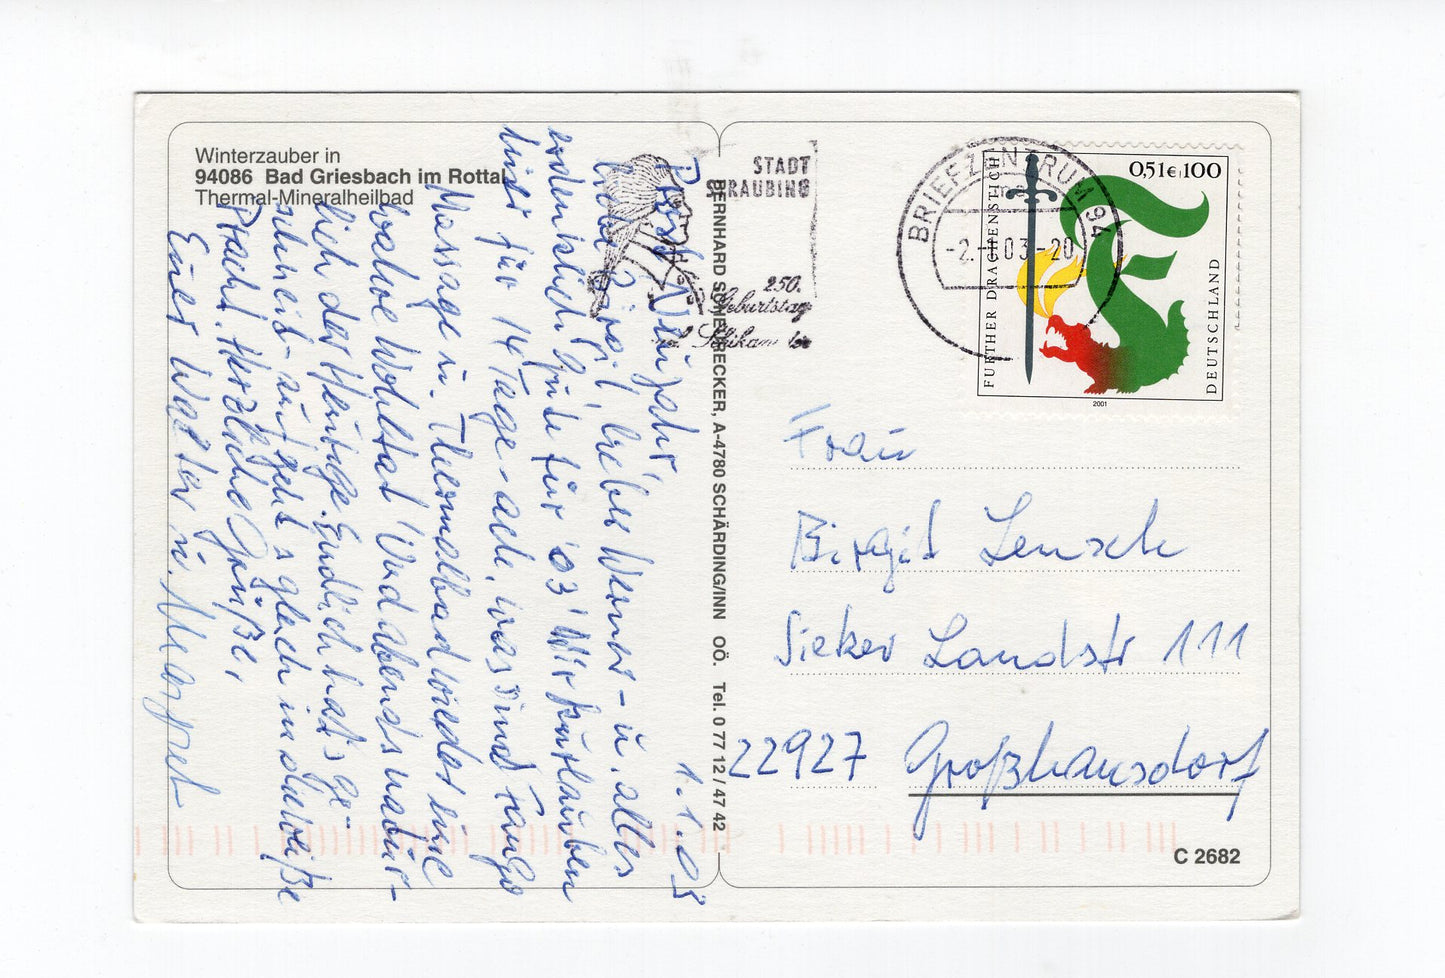 Winterzauber in
94086 Bad Griesbach im Rottal
Thermal-Mineralheilbad
1.1.03
Prost Neujahr,
liebe Birgit, lieber Werner - u. alles
erdenklich Gute für '03! Wir kurlauben
hier für 14 Tage - ach, was sind Fango
Massage u. Thermalbad wieder eine
wahre Wohltat! Und abends natür-
lich der Heurige. Endlich hat's ge-
schneit - auf geht's gleich in die weiße
Pracht. Herzliche Grüße,
Euer Walter u. Margret
BERNHARD SCHEUERECKER, A-4780 SCHÄRDING/INN OÖ. Tel. 0 77 12 / 47 42
STADT
STRAUBING
250.
Geburtstag
Schikaneder
BRIEFZENTRUM 94
-2.-1.03-20
0,51€+100
FURTHER DRACHENSTICH
DEUTSCHLAND
2001
Frau
Birgit Lensch
Sieker Landstr 111
22927 Großhansdorf
C 2682